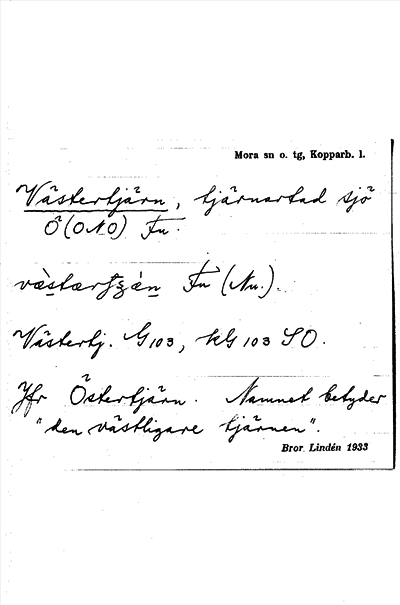 Mora sn o. tg, Kopparb. l.
Västertjärn, tjärnartad sjö
Ö (ONO) Fu.
Fu (Nu.).
Västertj. G103, kG 103 SO.
Jfr Östertjärn. Namnet betyder
"den västligare tjärnen".
Bror Lindén 1933